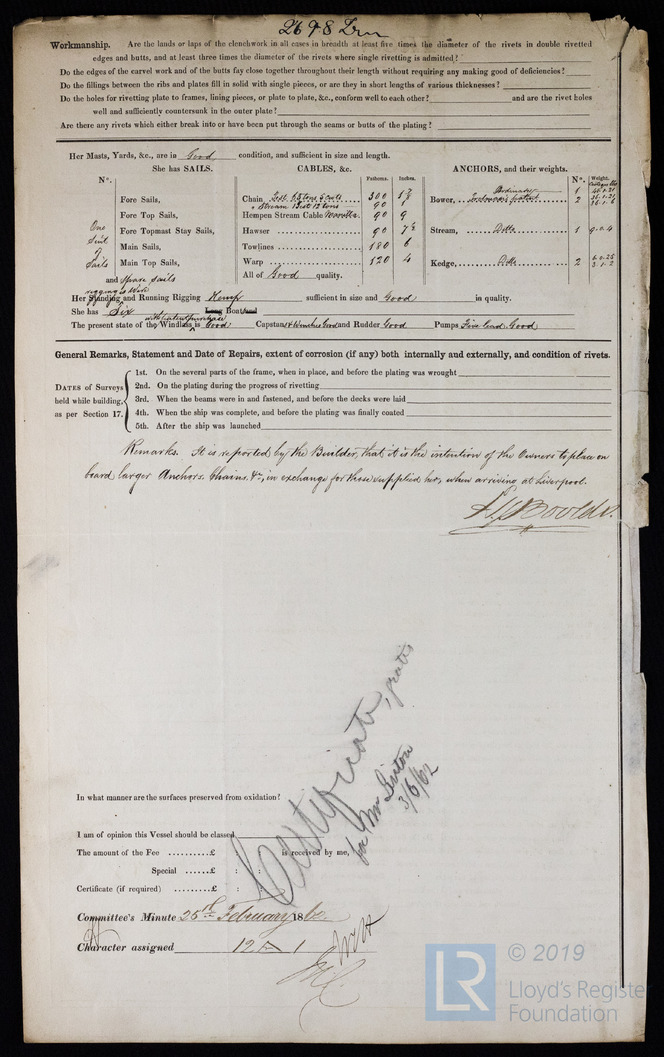 2698 Irn
Workmanship. Are the lands or laps of the clenchwork in all cases in breadth at least five times the diameter of the rivets in double rivetted
edges and butts, and at least three times the diameter of the rivets where single rivetting is admitted?
Do the edges of the carvel work and of the butts fay close together throughout their length without requiring any making good of deficiencies?
Do the fillings between the ribs and plates fill in solid with single pieces, or are they in short lengths of various thicknesses?
Do the holes for rivetting plate to frames, lining pieces, or plate to plate, &c., conform well to each other? and are the rivet holes
well and sufficiently countersunk in the outer plate?
Are there any rivets which either break into or have been put through the seams or butts of the plating?
Her Masts, Yards, &c., are in Good condition, and sufficient in size and length.
She has SAILS. CABLES, &c. ANCHORS, and their weights.
N°. Fathoms. Inches. N°. Weight.
Fore Sails, Chain 300
Fore Top Sails, Stream 90 1
Hempen Stream Cable 90 9
One Suit of Sails
Fore Topmast Stay Sails, Hawser 90 7½
Main Sails, Towlines 180 6
Main Top Sails, Warp 120 4
and Spare Sails All of Good quality.
Bower, 1
2
Stream, Ditto 1 9.0.4
Kedge, Ditto 2
Her Standing and Running Rigging Hemp sufficient in size and Good in quality.
She has Six Long Boat and
The present state of the Windlass is Good Capstan & Winches Good and Rudder Good Pumps Five lead Good
General Remarks, Statement and Date of Repairs, extent of corrosion (if any) both internally and externally, and condition of rivets.
DATES of Surveys held while building, as per Section 17.
1st. On the several parts of the frame, when in place, and before the plating was wrought
2nd. On the plating during the progress of rivetting
3rd. When the beams were in and fastened, and before the decks were laid
4th. When the ship was complete, and before the plating was finally coated
5th. After the ship was launched
Remarks. It is reported by the Builder, that it is the intention of the Owners to place on
board larger Anchors, Chains, &c, in exchange for those supplied her, when arriving at Liverpool.
Certificate, gratis
for Mr
3/6/62
In what manner are the surfaces preserved from oxidation?
I am of opinion this Vessel should be classed
The amount of the Fee .......... £ : : is received by me,
Special ...... £ : :
Certificate (if required) ......... £ : :
Committee's Minute 25th February 1862
Character assigned 12 A 1
© 2019
LR
Lloyd's Register
Foundation